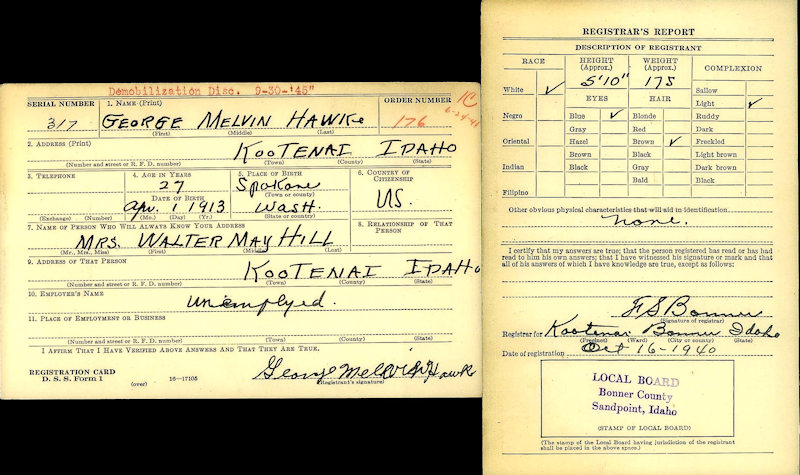 Demobilization Disc. 9-30-'45"
SERIAL NUMBER 1. NAME (Print) ORDER NUMBER
1C
6-24-41
317 GEORGE MELVIN HAWKE 176
(First) (Middle) (Last)
2. ADDRESS (Print)
KOOTENAI IDAHO
(Number and street or R. F. D. number) (Town) (County) (State)
3. TELEPHONE 4. AGE IN YEARS 5. PLACE OF BIRTH 6. COUNTRY OF CITIZENSHIP
27 Spokane
(Town or county)
DATE OF BIRTH
Apr. 1 1913 Wash. US.
(Exchange) (Number) (Mo.) (Day) (Yr.) (State or country)
7. NAME OF PERSON WHO WILL ALWAYS KNOW YOUR ADDRESS 8. RELATIONSHIP OF THAT PERSON
MRS. WALTER MAY HILL
(Mr., Mrs., Miss) (First) (Middle) (Last)
9. ADDRESS OF THAT PERSON
KOOTENAI IDAHO
(Number and street or R. F. D. number) (Town) (County) (State)
10. EMPLOYER'S NAME
unemplyed.
11. PLACE OF EMPLOYMENT OR BUSINESS
(Number and street or R. F. D. number) (Town) (County) (State)
I AFFIRM THAT I HAVE VERIFIED ABOVE ANSWERS AND THAT THEY ARE TRUE.
George Melvin Hawke
REGISTRATION CARD
D. S. S. Form 1 (over) 16—17105 (Registrant's signature)
REGISTRAR'S REPORT
DESCRIPTION OF REGISTRANT
RACE HEIGHT (Approx.) WEIGHT (Approx.) COMPLEXION
5'10" 175
White ✓ Sallow
EYES HAIR Light ✓
Negro Blue ✓ Blonde Ruddy
Gray Red Dark
Oriental Hazel Brown ✓ Freckled
Brown Black Light brown
Indian Black Gray Dark brown
Bald Black
Filipino
Other obvious physical characteristics that will aid in identification
none.
I certify that my answers are true; that the person registered has read or has had
read to him his own answers; that I have witnessed his signature or mark and that
all of his answers of which I have knowledge are true, except as follows:
F S Bonner
(Signature of registrar)
Registrar for Kootenai Bonner Idaho
(Precinct) (Ward) (City or county) (State)
Date of registration Oct 16-1940
LOCAL BOARD
Bonner County
Sandpoint, Idaho
(STAMP OF LOCAL BOARD)
(The stamp of the Local Board having jurisdiction of the registrant
shall be placed in the above space.)